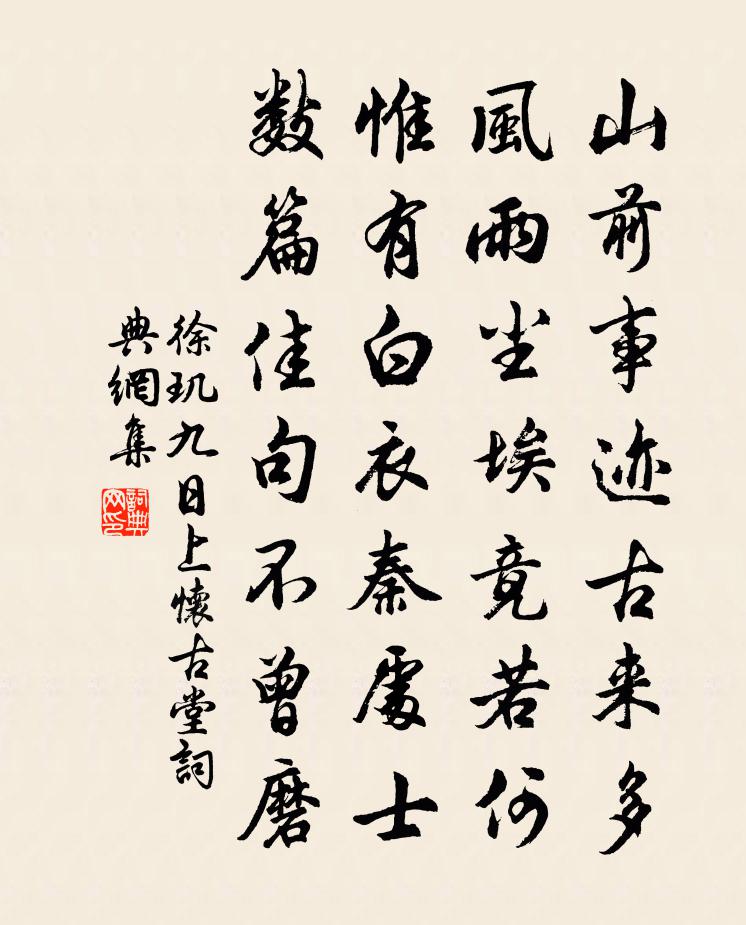 山前事迹古来多
風雨尘埃竟若何
惟有白衣秦處士
数篇佳句不曾磨
徐玑九日上懷古堂詞
典網集
詞典网印